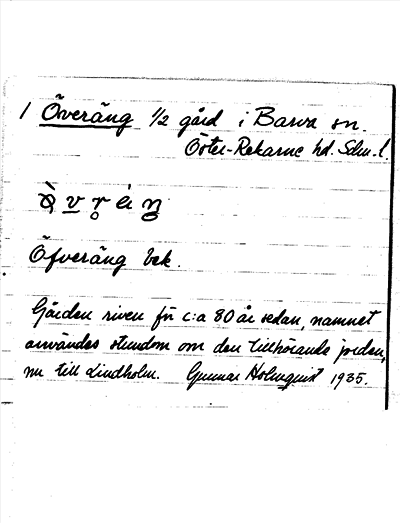 1 Överäng 1/2 gård i Barva sn.
Öster-Rekarne hd. Sdm. l.
Öfveräng bek.
Gården riven för c:a 80 år sedan, namnet
användes stundom om den tillhörande jorden,
nu till Lindholm. Gunnar Holmquist 1935.